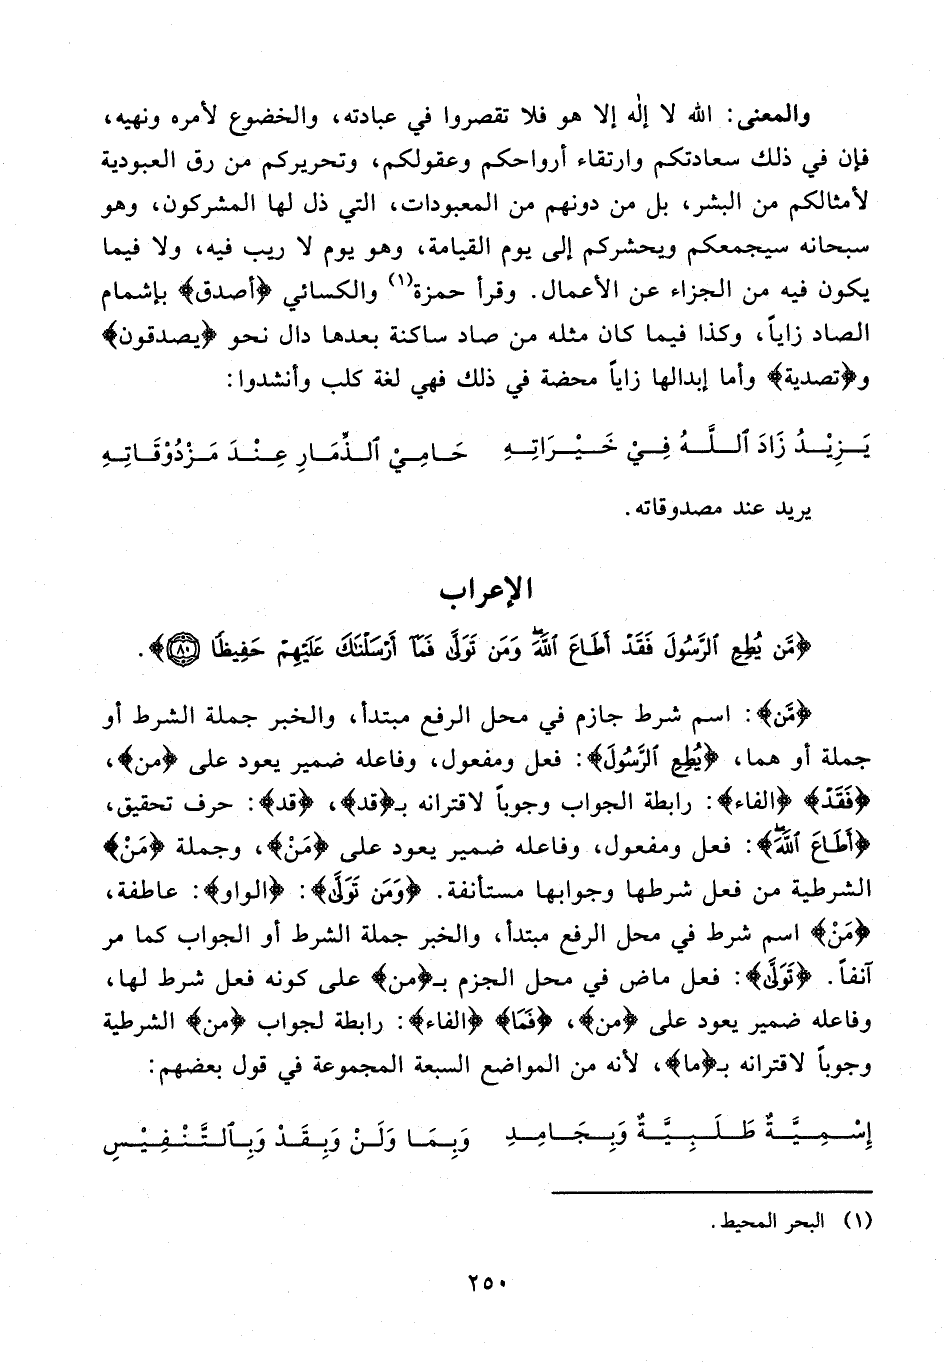 والمعنى: الله لا إلٰه إلا هو فلا تقصروا في عبادته، والخضوع لأمره ونهيه،
فإن في ذلك سعادتكم وارتقاء أرواحكم وعقولكم، وتحريركم من رق العبودية
لأمثالكم من البشر، بل من دونهم من المعبودات، التي ذل لها المشركون، وهو
سبحانه سيجمعكم ويحشركم إلى يوم القيامة، وهو يوم لا ريب فيه، ولا فيما
يكون فيه من الجزاء عن الأعمال. وقرأ حمزة(١) والكسائي ﴿أصدق﴾ بإشمام
الصاد زاياً، وكذا فيما كان مثله من صاد ساكنة بعدها دال نحو ﴿يصدقون﴾
و﴿تصدية﴾ وأما إبدالها زاياً محضة في ذلك فهي لغة كلب وأنشدوا:
يَزِيْدُ زَادَ ٱللَّهُ فِيْ خَيْرَاتِهِ حَامِيْ ٱلذِّمَارِ عِنْدَ مَزْدُوْقَاتِهِ
يريد عند مصدوقاته.
الإعراب
﴿مَّن يُطِعِ ٱلرَّسُولَ فَقَدْ أَطَاعَ ٱللَّهَۖ وَمَن تَوَلَّىٰ فَمَآ أَرْسَلْنَٰكَ عَلَيْهِمْ حَفِيظًا ٨٠﴾.
﴿مَّن﴾: اسم شرط جازم في محل الرفع مبتدأ، والخبر جملة الشرط أو
جملة أو هما، ﴿يُطِعِ ٱلرَّسُولَ﴾: فعل ومفعول، وفاعله ضمير يعود على ﴿من﴾،
﴿فَقَدْ﴾ ﴿الفاء﴾: رابطة الجواب وجوباً لاقترانه بـ﴿قد﴾، ﴿قد﴾: حرف تحقيق،
﴿أَطَاعَ ٱللَّهَۖ﴾: فعل ومفعول، وفاعله ضمير يعود على ﴿مَنْ﴾، وجملة ﴿مَنْ﴾
الشرطية من فعل شرطها وجوابها مستأنفة. ﴿وَمَن تَوَلَّىٰ﴾: ﴿الواو﴾: عاطفة،
﴿مَنْ﴾ اسم شرط في محل الرفع مبتدأ، والخبر جملة الشرط أو الجواب كما مر
آنفاً. ﴿تَوَلَّىٰ﴾: فعل ماض في محل الجزم بـ﴿من﴾ على كونه فعل شرط لها،
وفاعله ضمير يعود على ﴿من﴾، ﴿فَمَا﴾ ﴿الفاء﴾: رابطة لجواب ﴿من﴾ الشرطية
وجوباً لاقترانه بـ﴿ما﴾، لأنه من المواضع السبعة المجموعة في قول بعضهم:
إِسْمِيَّةٌ طَلَبِيَّةٌ وَبِجَامِدِ وَبِمَا وَلَنْ وَبِقَدْ وَبِٱلتَّنْفِيْسِ
(١) البحر المحيط.
٢٥٠